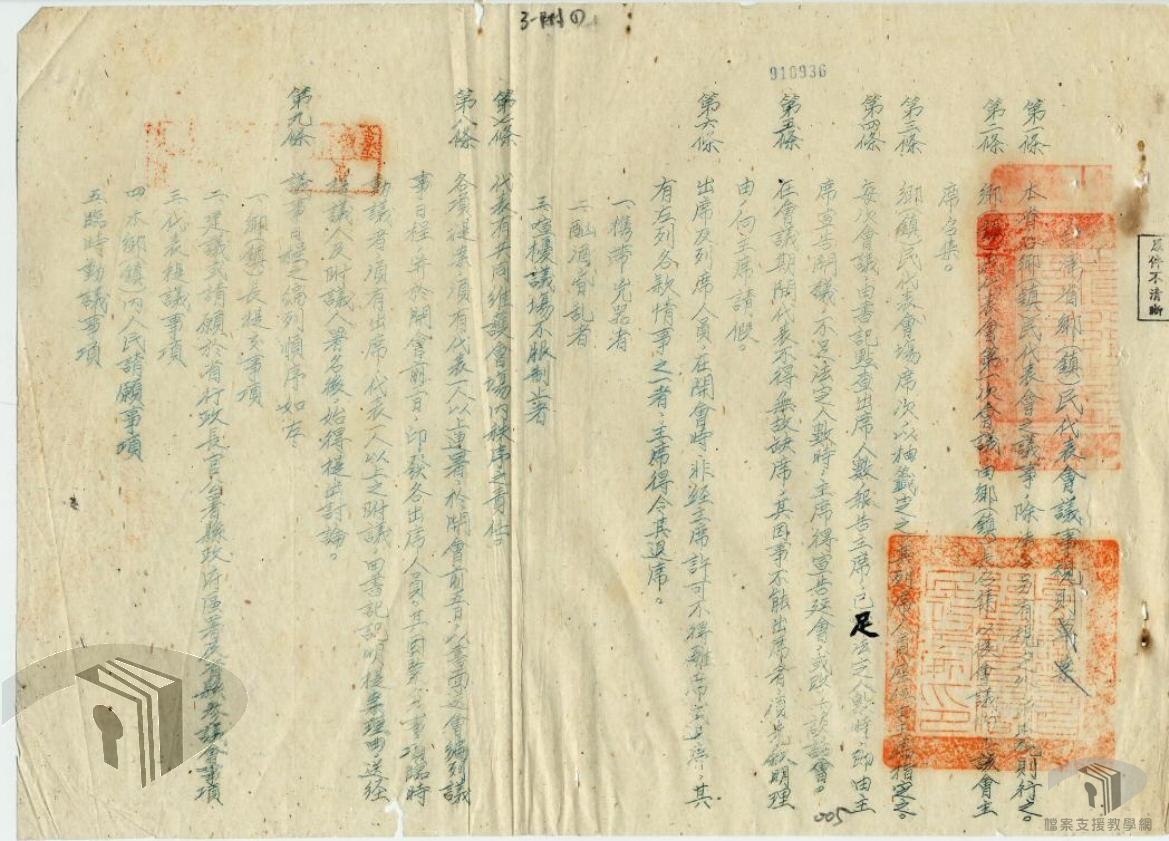 3-附①
910936
原件不清晰
省鄉(鎮)民代表會議事規則草案
第一條 本省各鄉(鎮)民代表會之議事,除法令別有規定外,依本規則行之。
第二條 鄉鎮民代表會第一次會議,由鄉(鎮)長召集,以後會議由會主
席召集。
第三條 鄉(鎮)民代表會場席次,以抽籤定之,其列席人員座位由主席指定之。
第四條 每次會議由書記點查出席人數,報告主席,已足法定人數時,即由主
席宣告開議,不足法定人數時,主席得宣告延會,或改開談話會。
第五條 在會議期間代表不得無故缺席,其因事不能出席者,須先敘明理
由,向主席請假。
第六條 出席及列席人員,在開會時,非經主席許可不得離席或退席,其
有左列各款情事之一者,主席得令其退席。
一、携帶兇器者
二、酗酒亂者
三、喧擾議場不服制止者
第七條 代表有共同維護會場內秩序之責任。
第八條 各項提案須有代表一人以上連署,於開會前三日,以書面送會編列議
事日程,並於開會前一日,印發各出席人員,其因緊急事項臨時
動議者,須有出席代表一人以上之附議,由書記說明提案理由送經
提議人及附議人署名後,始得提出討論。
第九條 議事日程之編列順序如左:
一、鄉(鎮)長提交事項
二、建議或請願於有行政長官公署縣政府區署及縣參議會事項
三、代表提議事項
四、本鄉(鎮)內人民請願事項
五、臨時動議事項
005
檔案支援教學網